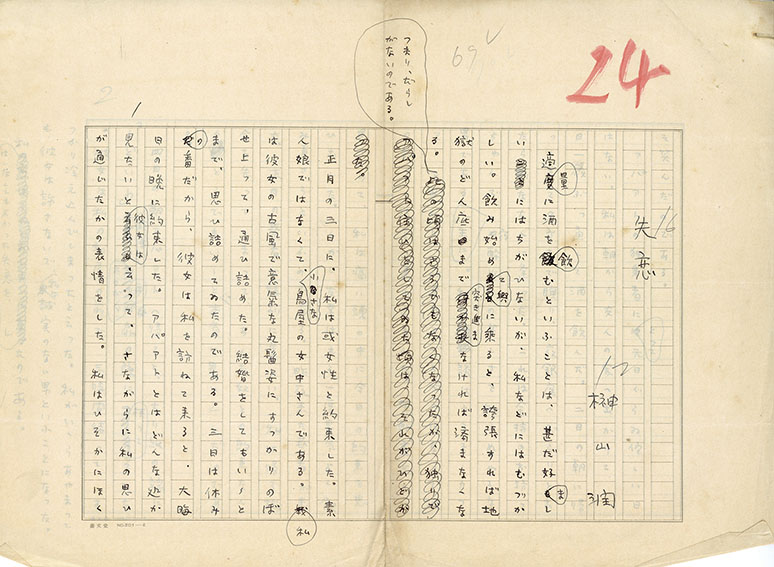 24
69
失恋
16
12
榊山潤
適度に酒を飲むといふことは、甚だ好まし
いにはちがひないが、私などにはむづか
しい。飲み始めて興に乗ると、誇張すれば地
獄のどん底まで突き進まなければ済まなくな
る。
つまり、だらし
がないのである。
正月の三日に、私は或女性と約束した。素
人娘ではなくて、小さな鳥屋の女中さんである。私
は彼女の古風で意気な丸髷姿にすつかりのぼ
せ上つて、通ひ詰めた。結婚をしてもいゝと
まで、思ひ詰めてゐたのである。三日は休み
の番だから、彼女は私を訪ねて来ると、大晦
日の晩に約束した。アパアトとはどんな処か
見たいと彼女は云つて、さながらに私の思ひ
が通じたかの表情をした。私はひそかにほく